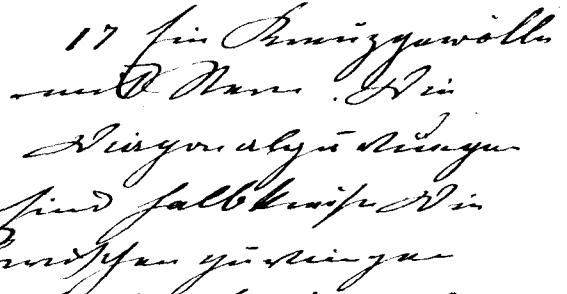 17 Ein Kreuzgewölbe
mit Stern. Die
Diagonalgurtungen
sind halbkreise Die
zwischen gurtungen